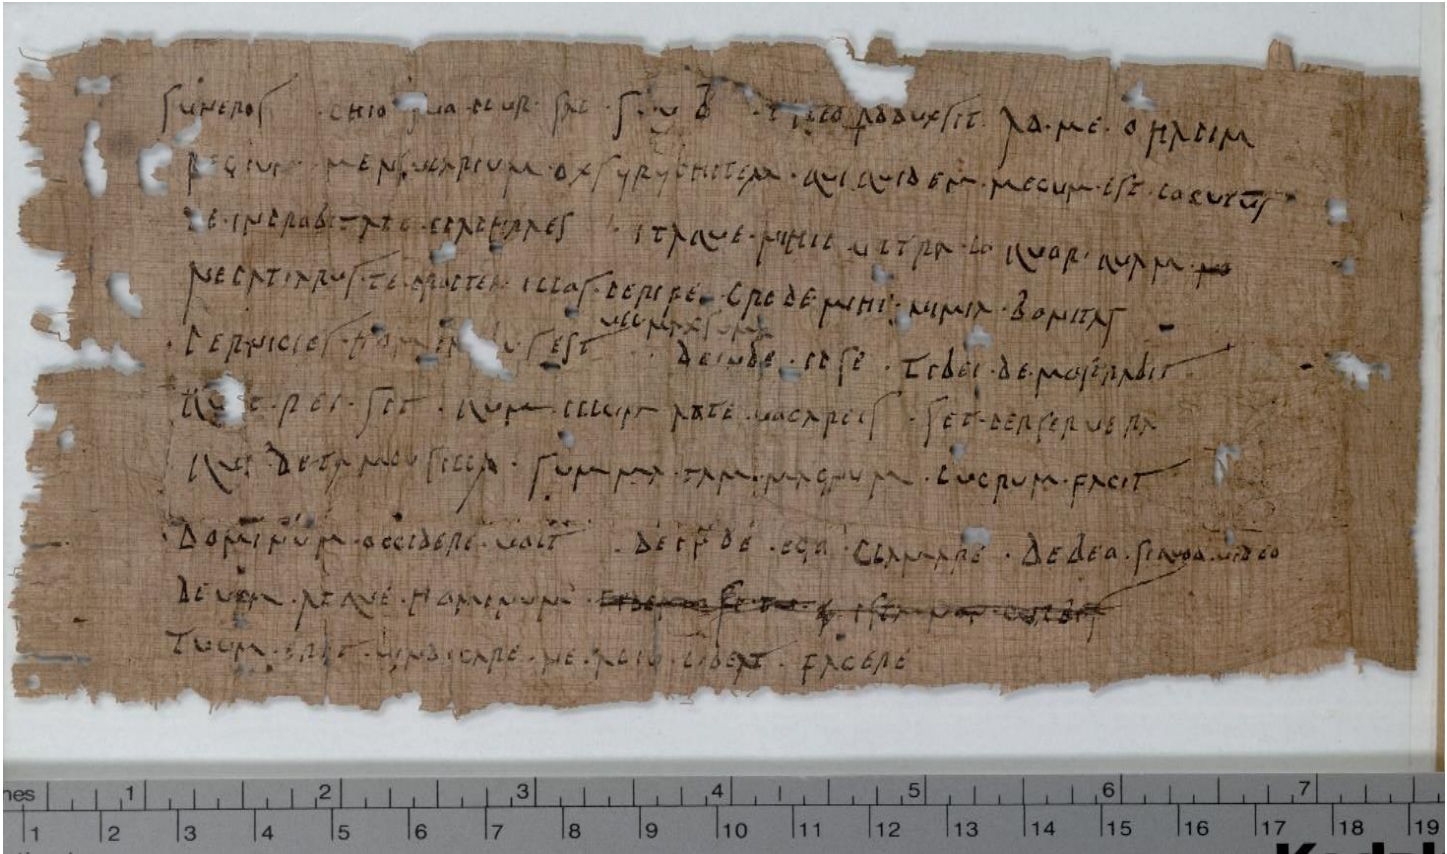 Suneros Chio suo plur sal s u b Theo adduxsit ad me Ohapim
regium mensularium Oxsyrychitem qui quidem mecum est locutus
de inprobitate Epaphraes itaque nihil ultra loquor quam
ne patiarus te propter illos perire crede mihi nimia bonitas
uel maxsuma
pernicies hominibus est deinde ipse tibei demostrabit
quit rei sit qum illum ad te uocareis set perseruera
qui de tam pusilla summa tam magnum lucrum facit
dominum occidere uolt deinde ego clamare debeo siquod uideo
deuom atque hominum
tuum erit uindicare ne alio libeat facere
1 2 3 4 5 6 7
1 2 3 4 5 6 7 8 9 10 11 12 13 14 15 16 17 18 19